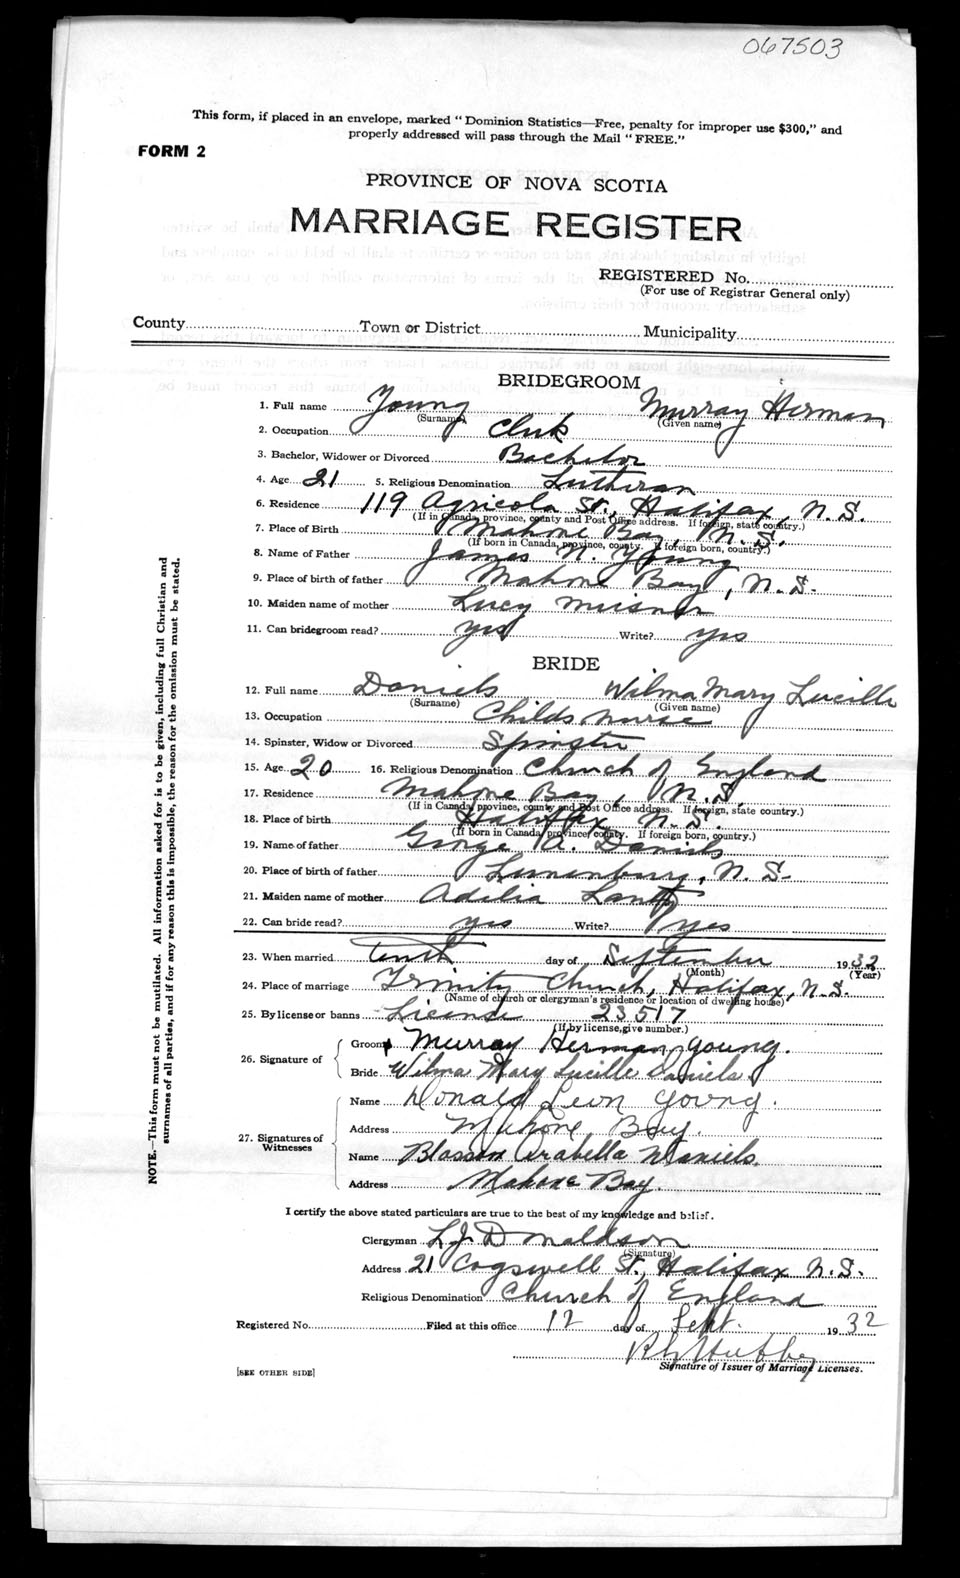 067503
This form, if placed in an envelope, marked "Dominion Statistics—Free, penalty for improper use $300," and
properly addressed will pass through the Mail "FREE."
FORM 2
PROVINCE OF NOVA SCOTIA
MARRIAGE REGISTER
REGISTERED No.
(For use of Registrar General only)
County Town or District Municipality
BRIDEGROOM
1. Full name Young Murray Herman
(Surname) (Given name)
2. Occupation Clerk
3. Bachelor, Widower or Divorced Bachelor
4. Age 21 5. Religious Denomination Lutheran
6. Residence 119 Agricola St., Halifax, N.S.
(If in Canada, province, county and Post Office address. If foreign, state country.)
7. Place of Birth Mahone Bay, N.S.
(If born in Canada, province, county. If foreign born, country.)
8. Name of Father James N. Young
9. Place of birth of father Mahone Bay, N.S.
10. Maiden name of mother Lucy Meisner
11. Can bridegroom read? yes Write? yes
BRIDE
12. Full name Daniels Wilma Mary Lucille
(Surname) (Given name)
13. Occupation Childs nurse
14. Spinster, Widow or Divorced Spinster
15. Age 20 16. Religious Denomination Church of England
17. Residence Mahone Bay, N.S.
(If in Canada, province, county and Post Office address. If foreign, state country.)
18. Place of birth Halifax N.S.
(If born in Canada, province, county. If foreign born, country.)
19. Name of father George A. Daniels
20. Place of birth of father Lunenburg, N.S.
21. Maiden name of mother Adelia Lantz
22. Can bride read? yes Write? yes
23. When married tenth day of September 1932
(Month) (Year)
24. Place of marriage Trinity Church, Halifax, N.S.
(Name of church or clergyman's residence or location of dwelling house)
25. By license or banns License 23517
(If by license, give number.)
26. Signature of
Groom Murray Herman Young.
Bride Wilma Mary Lucille Daniels
27. Signatures of Witnesses
Name Donald Leon Young.
Address Mahone Bay.
Name Blossom Arabella Daniels.
Address Mahone Bay.
I certify the above stated particulars are true to the best of my knowledge and belief.
Clergyman L.J. Donaldson
(Signature)
Address 21 Cogswell St., Halifax N.S.
Religious Denomination Church of England
Registered No. Filed at this office 12 day of Sept. 1932
Signature of Issuer of Marriage Licenses.
[SEE OTHER SIDE]
NOTE.—This form must not be mutilated. All information asked for is to be given, including full Christian and
surnames of all parties, and if for any reason this is impossible, the reason for the omission must be stated.